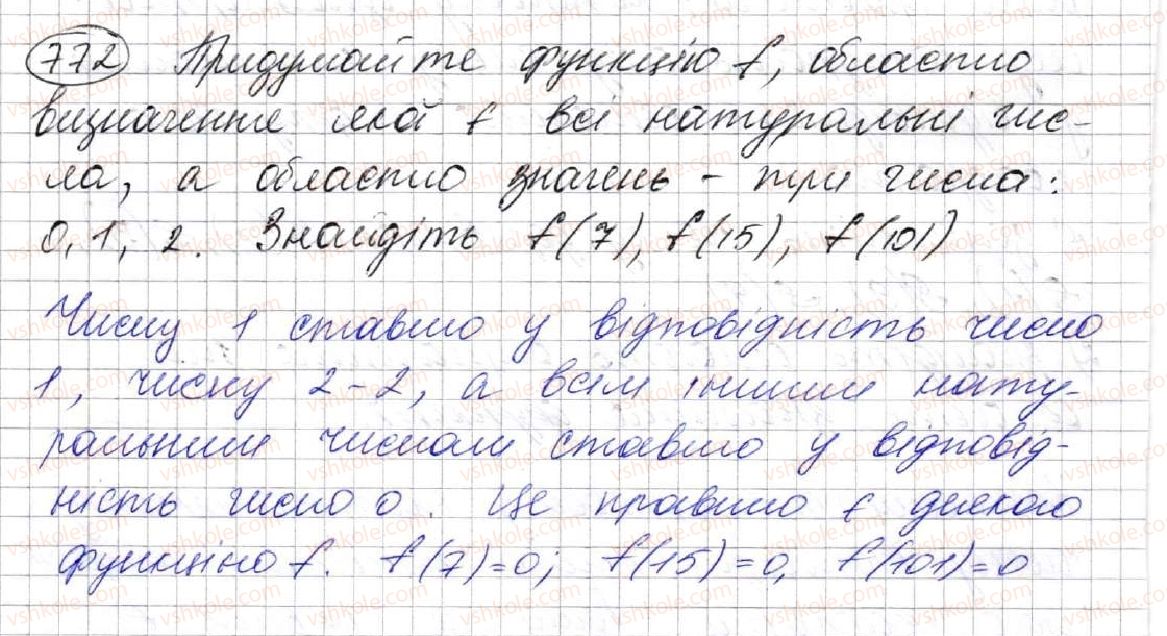 772 Придумайте функцію f, областю
визначення якої є всі натуральні чис-
ла, а областю значень - три числа:
0, 1, 2. Знайдіть f(7), f(15), f(101)
Числу 1 ставимо у відповідність число
1, числу 2-2, а всім іншим нату-
ральним числам ставимо у відповід-
ність число 0. Це правило є деякою
функцією f. f(7)=0; f(15)=0, f(101)=0